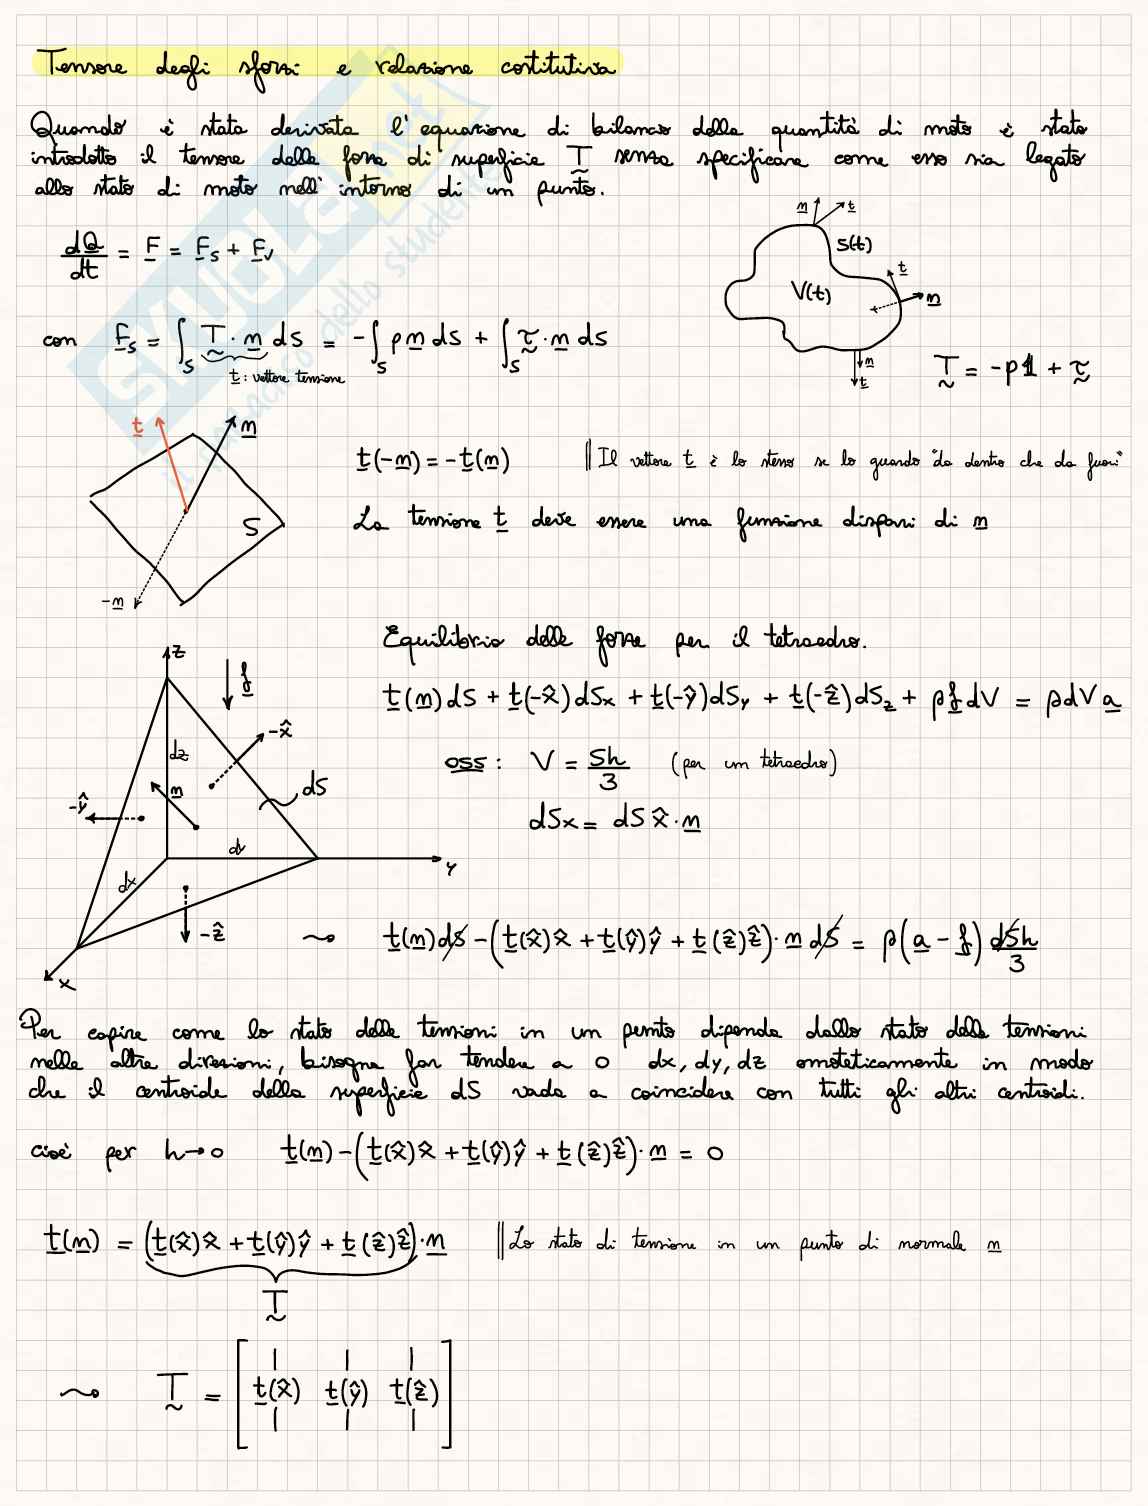 Tensore degli sforzi e relazione costitutiva
Quando è stata derivata l'equazione di bilancio della quantità di moto è stato
introdotto il tensore delle forze di superficie T senza specificare come esso sia legato
allo stato di moto nell'intorno di un punto.
dQ/dt = F = Fs + Fv
n t
S(t)
V(t)
t
n
n
t
con Fs = ∫s T · n dS = -∫s p n dS + ∫s τ · n dS
t : vettore tensione
T = -p1 + τ
t n
S
-n
t(-n) = -t(n) || Il vettore t è lo stesso se lo guardo "da dentro che da fuori"
La tensione t deve essere una funzione dispari di n
Equilibrio delle forze per il tetraedro.
t(n)dS + t(-x̂)dSx + t(-ŷ)dSy + t(-ẑ)dSz + ρ f dV = ρ dV a
oss : V = Sh/3 (per un tetraedro)
dSx = dS x̂ · n
z
f
-x̂
dz
n
dS
-ŷ
dy
y
dx
-ẑ
x
⇝ t(n)dS - (t(x̂)x̂ + t(ŷ)ŷ + t(ẑ)ẑ) · n dS = ρ(a - f) dSh/3
Per capire come lo stato delle tensioni in un punto dipenda dallo stato delle tensioni
nelle altre direzioni, bisogna far tendere a 0 dx, dy, dz omoteticamente in modo
che il centroide della superficie dS vada a coincidere con tutti gli altri centroidi.
cioè per h→0 t(n) - (t(x̂)x̂ + t(ŷ)ŷ + t(ẑ)ẑ) · n = 0
t(n) = (t(x̂)x̂ + t(ŷ)ŷ + t(ẑ)ẑ) · n || Lo stato di tensione in un punto di normale n
T
⇝ T = [ t(x̂) t(ŷ) t(ẑ) ]